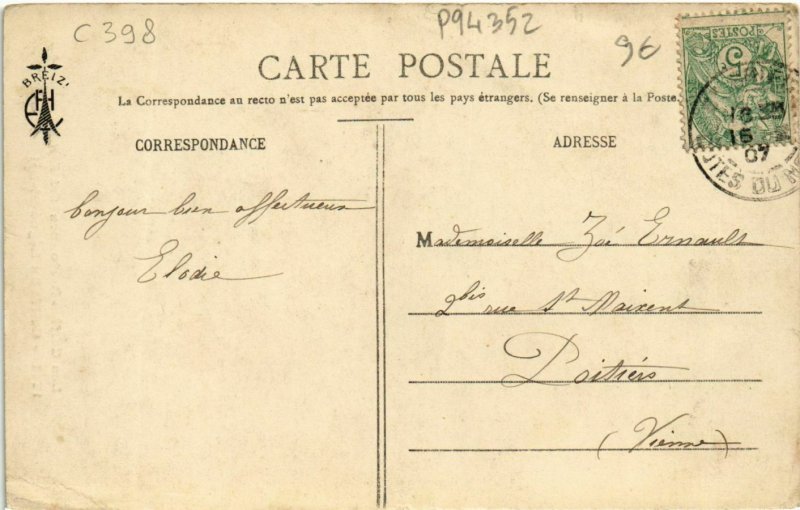 C 398
P94352
9€
BREIZ'
CARTE POSTALE
La Correspondance au recto n'est pas acceptée par tous les pays étrangers. (Se renseigner à la Poste.)
CORRESPONDANCE
bonjour bien affectueux
Elodie
ADRESSE
Mademoiselle Zoé Ernault
2bis rue St Maixent
Poitiers
(Vienne)
POSTES
5
16
07
TES DU N